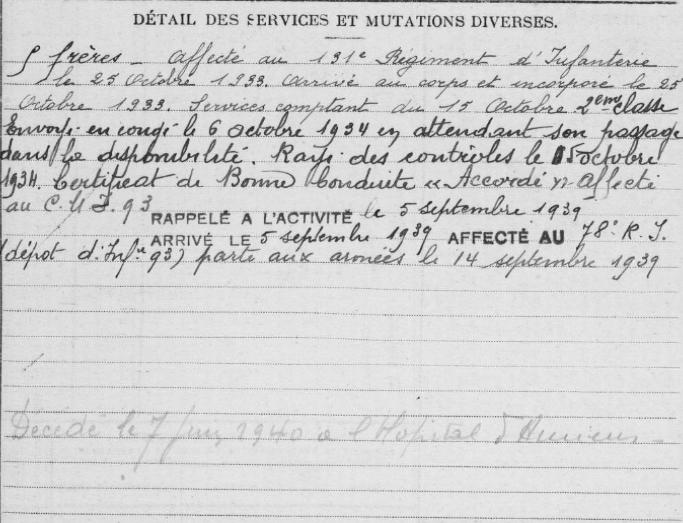 DÉTAIL DES SERVICES ET MUTATIONS DIVERSES.
5 frères - affecté au 131e Régiment d'Infanterie
le 25 Octobre 1933. Arrivé au corps et incorporé le 25
Octobre 1933. Services comptant du 15 Octobre 2ème classe
Envoyé en congé le 6 octobre 1934 en attendant son passage
dans la disponibilité. Rayé des contrôles le 15 octobre
1934. Certificat de Bonne Conduite "Accordé" affecté
au C.M.I. 93 RAPPELÉ A L'ACTIVITÉ le 5 septembre 1939
ARRIVÉ LE 5 septembre 1939 AFFECTÉ AU 78e R.I.
(dépôt d'Inf.ie 93) parti aux armées le 14 septembre 1939
Décédé le 7 Juin 1940 à l'Hopital d'